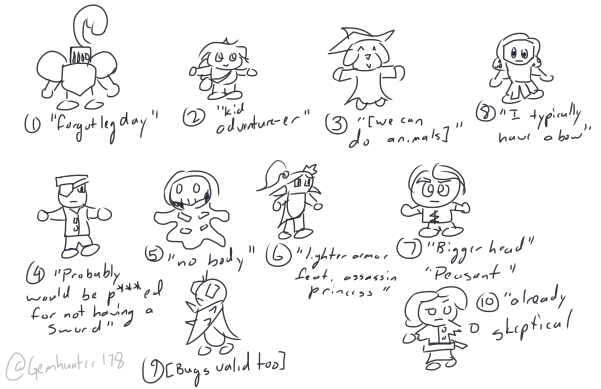 ① "forgot leg day"
② "kid
adventurer-er"
③ "[we can
do animals]"
⑧ "I typically
have a bow"
④ "Probably
would be p***ed
for not having a
sword"
⑤ "no body"
⑥ "lighter armor
feat. assassin
princess"
⑦ "Bigger head"
"Peasant"
⑨ [Bugs valid too]
⑩ "already
skeptical
@Gemhunter178